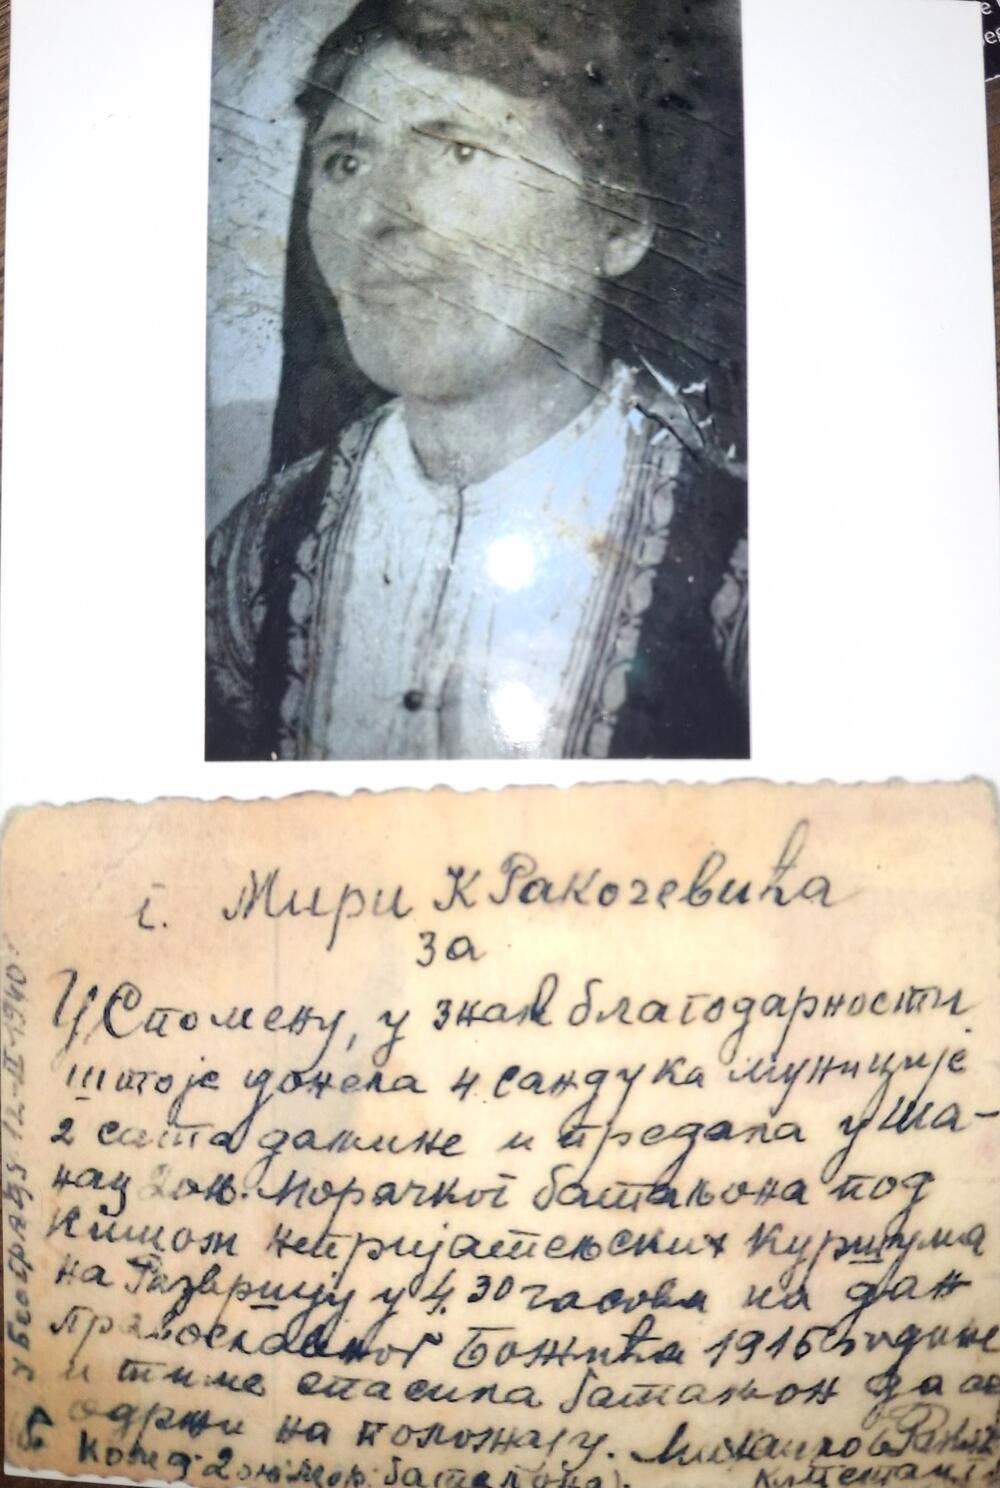 г. Мири К Ракочевића
за
У Спомену, у знак благодарности
што је донела 4 сандука муниције
2 сата даљине и предала у Ша-
нац Дољ. Морачког батаљона под
кишом непријатељских куршума
на Развршју у 4.30 часова на дан
православног Божића 1916 године
и тиме спасила батаљон да се
одржи на положају.
Ком.д. 2 батаљона).
у Београду 12-II-1940.